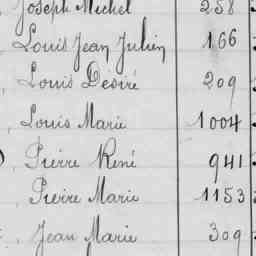 Joseph Michel 258
Louis Jean Julien 166
Louis Désiré 209
Louis Marie 1004
Pierre René 941
Pierre Marie 1153
Jean Marie 309